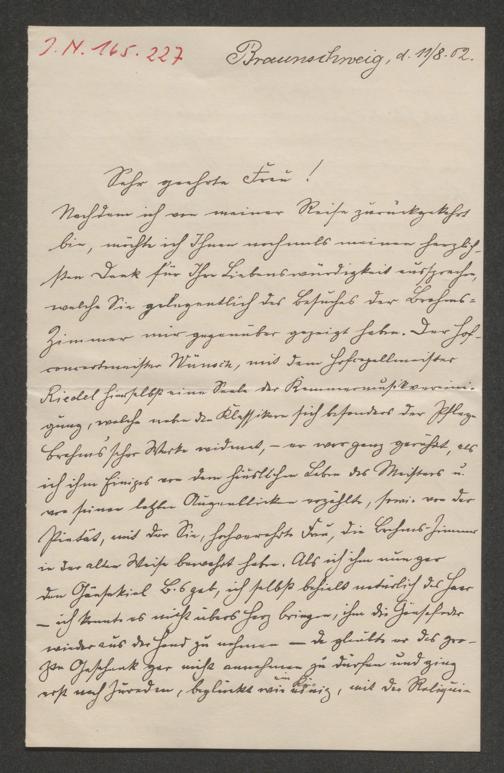 J. N. 165.227
Braunschweig, d. 11/8.02.
Sehr geehrte Frau!
Nachdem ich von meiner Reise zurückgekehrt
bin, möchte ich Ihnen nochmals meinen herzlich-
sten Dank für Ihre Liebenswürdigkeit aussprechen,
welche Sie gelegentlich des Besuches der Brahms-
Zimmer mir gegenüber gezeigt haben. Der Hof-
concertmeister Wünsch, mit dem Hofcapellmeister
Riedel hierselbst eine Seele der Kammermusikvereini-
gung, welche neben den Klassikern sich besonders der Pflege
Brahms'scher Werke widmet, – er war ganz gerührt, als
ich ihm Einiges von dem häuslichen Leben des Meisters u.
von seinen letzten Augenblicken erzählte, sowie von der
Pietät, mit der Sie, hochverehrte Frau, die Brahms-Zimmer
in der alten Weise bewahrt haben. Als ich ihm nun gar
den Gänsekiel gab, ich selbst behielt natürlich das Haar
– ich konnte es nicht übers Herz bringen, ihm die Gänsefeder
wieder aus der Hand zu nehmen – da glaubte er das gro-
ße Geschenk gar nicht annehmen zu dürfen und ging
erst nach Zureden, beglückt wie ein König, mit der Reliquie